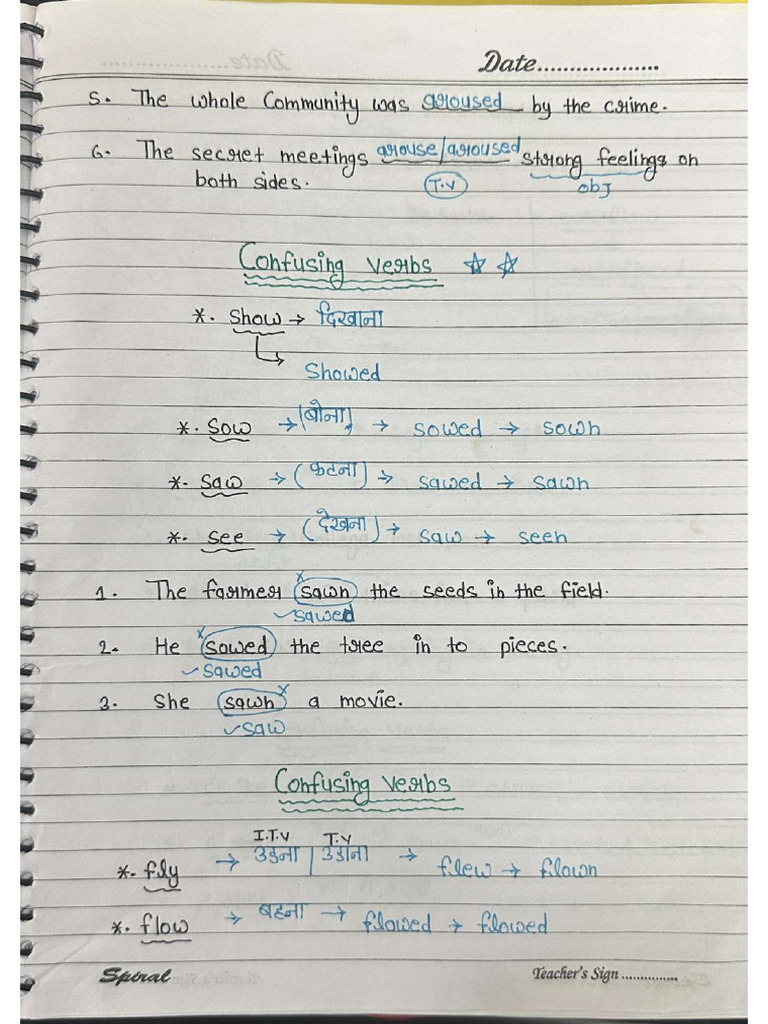 Date...................
5. The whole Community was aroused by the crime.
6. The secret meetings arouse/aroused strong feelings on
both sides. T.V obj
Confusing verbs
*. Show → दिखाना
Showed
*. Sow → (बोना) → sowed → sown
*. Saw → (काटना) → sawed → sawn
*. see → (देखना) → saw → seen
1. The farmer sawn x the seeds in the field.
✓sawed
2. He x sowed the tree in to pieces.
✓sawed
3. She sawn x a movie.
✓saw
Confusing verbs
I.T.V T.V
*. fly → उड़ना | उड़ाना → flew → flown
*. flow → बहना → flowed → flowed
Spiral Teacher's Sign ...............